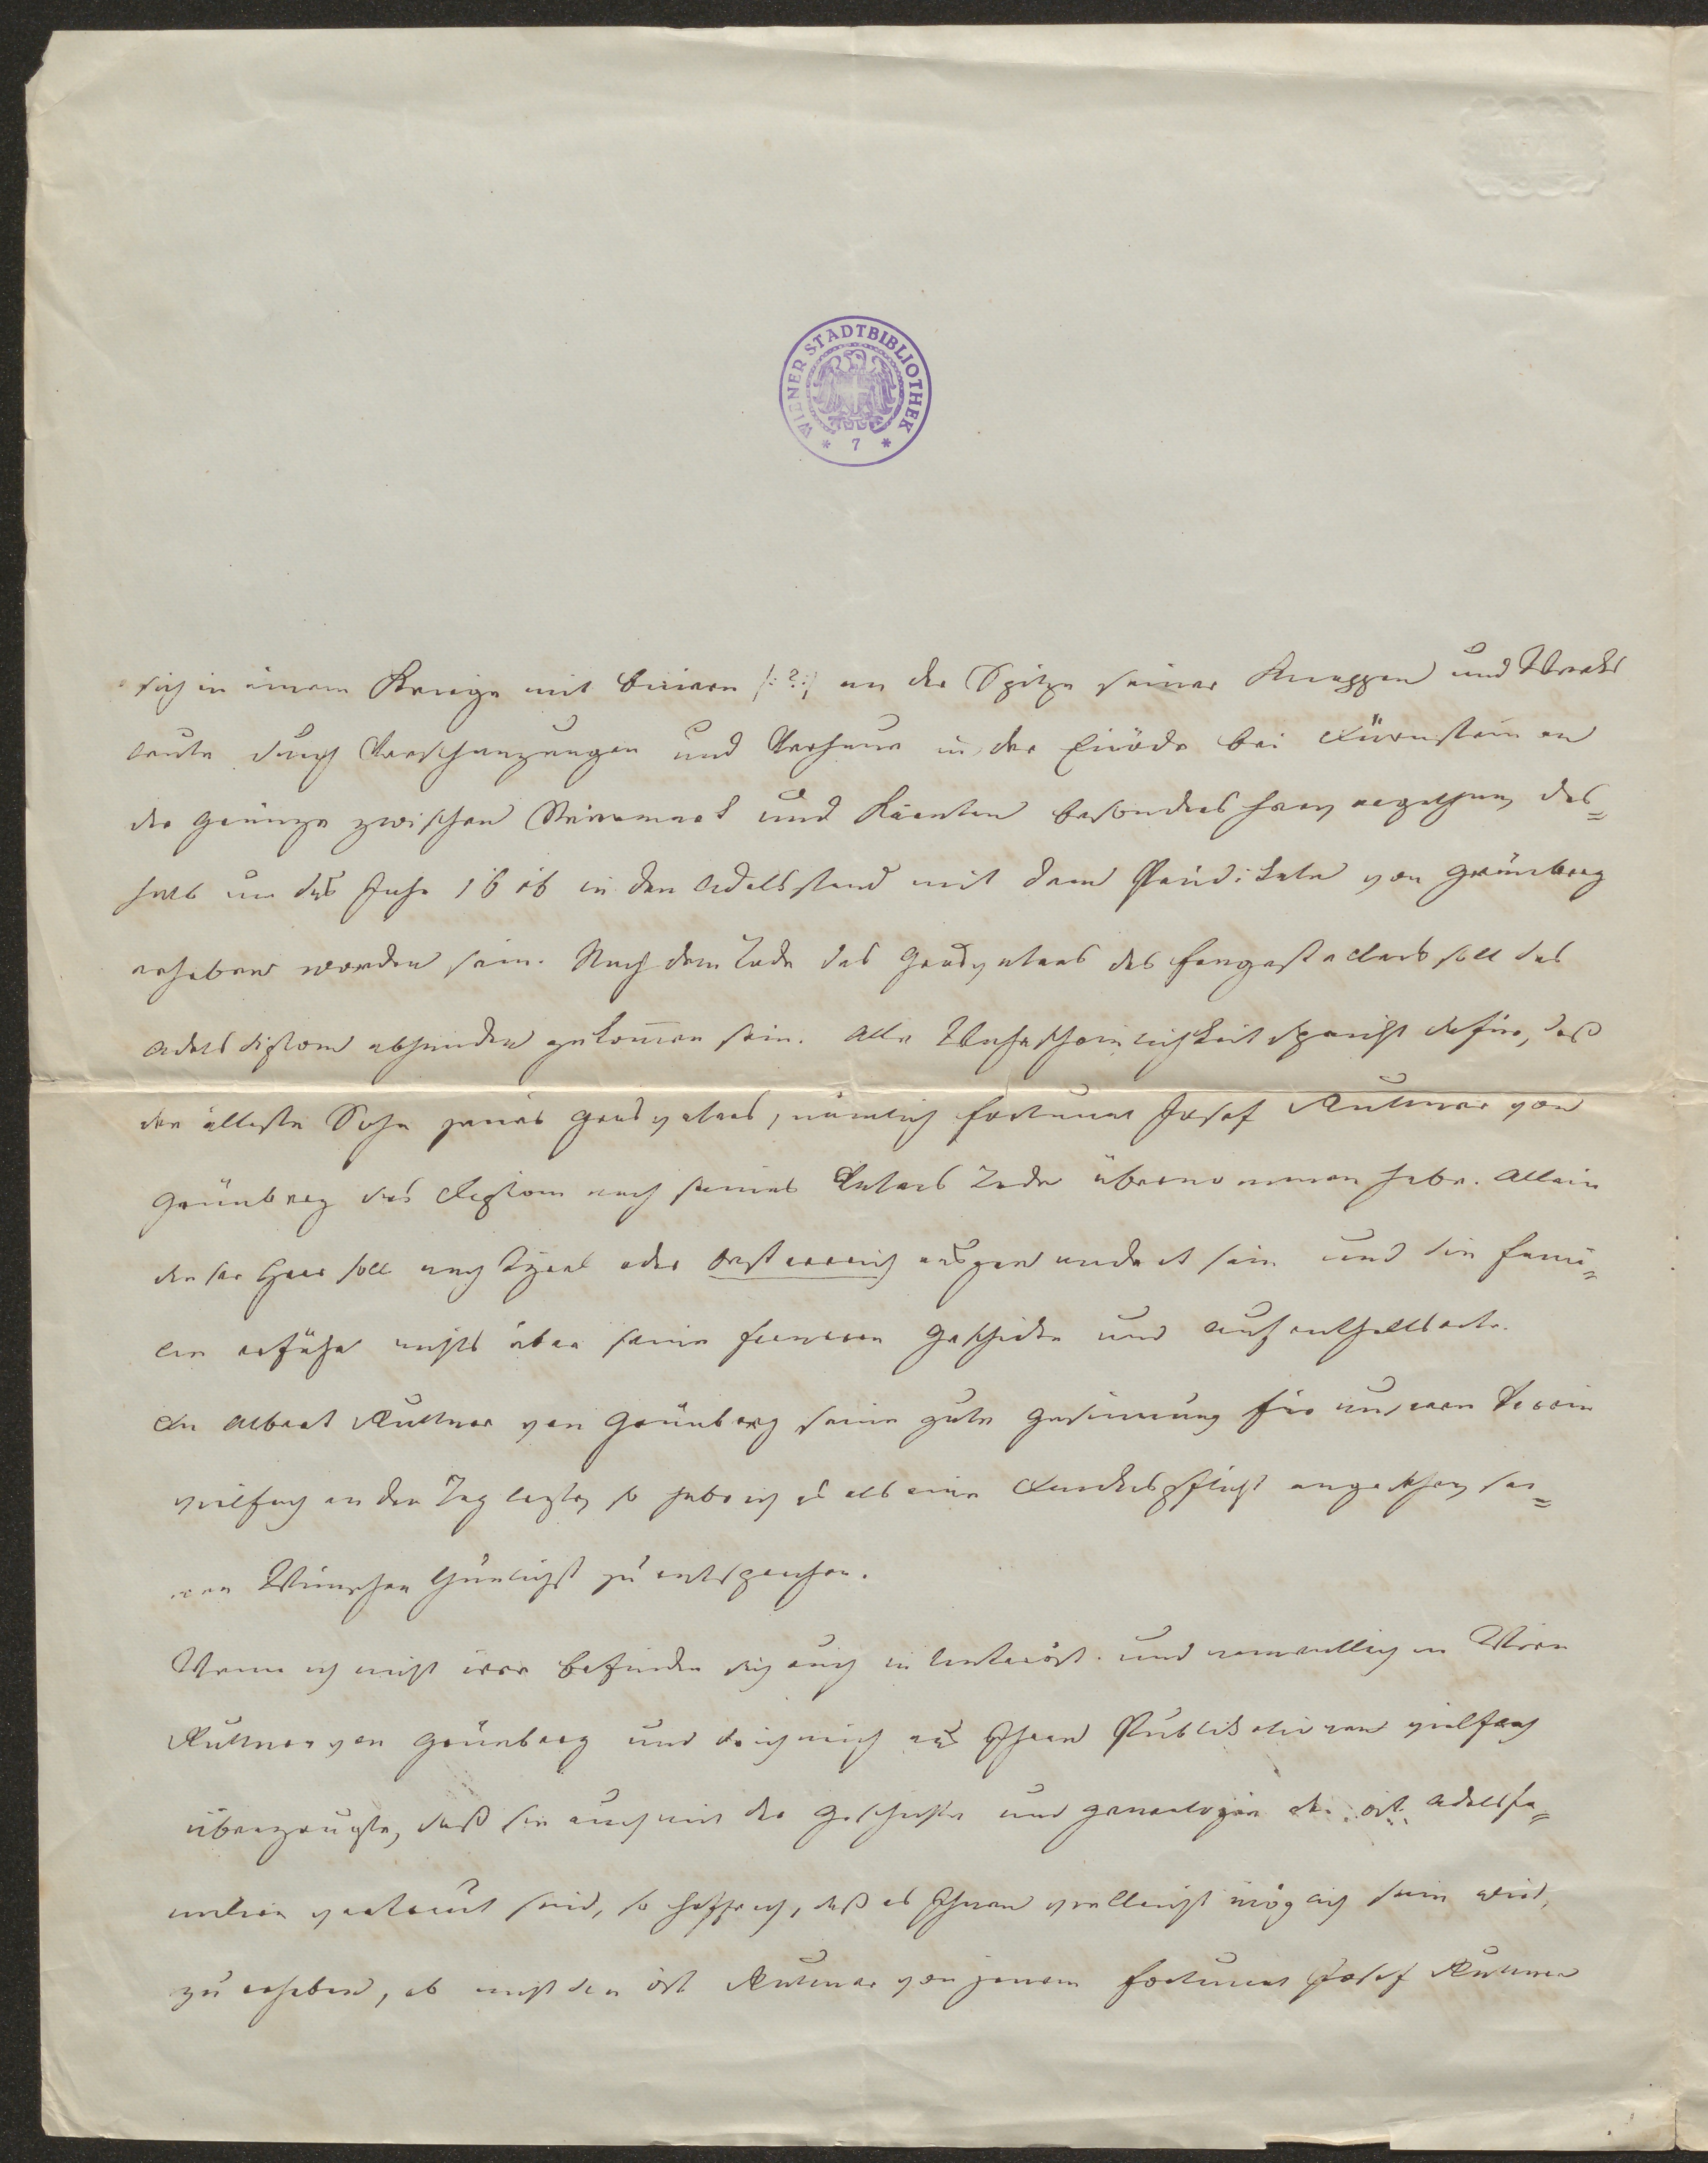 WIENER STADTBIBLIOTHEK
* 7 *
sich in einem Kriege mit Baiern /:?:/ an der Spitze seiner Knappen und Werks
leute durch Verschanzungen und Verhaue in der Einöde bei Dürnstein an
der Gränze zwischen Steiermark und Kärnten besonders hervorgethan, des=
halb um das Jahr in den Adelsstand mit dem Prädikate von Grünberg
erhoben worden sein. Nach dem Tode des Großvaters des soll das
Adelsdiplom abhanden gekommen sein. Alle Wahrscheinlichkeit spricht dafür, daß
der älteste Sohn jenes Großvaters, nämlich Fortunat Josef Ruttner von
Grünberg das Diplom nach seines Vaters Tode übernommen habe. Allein
dieser Herr soll nach Tyrol oder Oesterreich ausgewandert sein und die Fami=
lie erfuhr nichts über seine ferneren Geschicke und Aufenthaltsorte.
Da Albert Ruttner von Grünberg seine gute Gesinnung für unseren Verein
vielfach an den Tag legte, so habe ich es als eine Dankespflicht angesehen, sei=
nen Wünschen thunlichst zu entsprechen.
Wenn ich nicht irre befinden sich auch in Unteröst. und namentlich in Wien
Ruttner von Grünberg und da ich mich aus Ihren Publikationen vielfach
überzeugte, daß Sie auch mit der Geschichte und Genealogie der öst. Adelsfa=
milien vertraut sind, so hoffe ich, daß es Ihnen vielleicht möglich sein wird,
zu erheben, ob nicht die öst Ruttner von jenem Fortunat Josef Ruttner